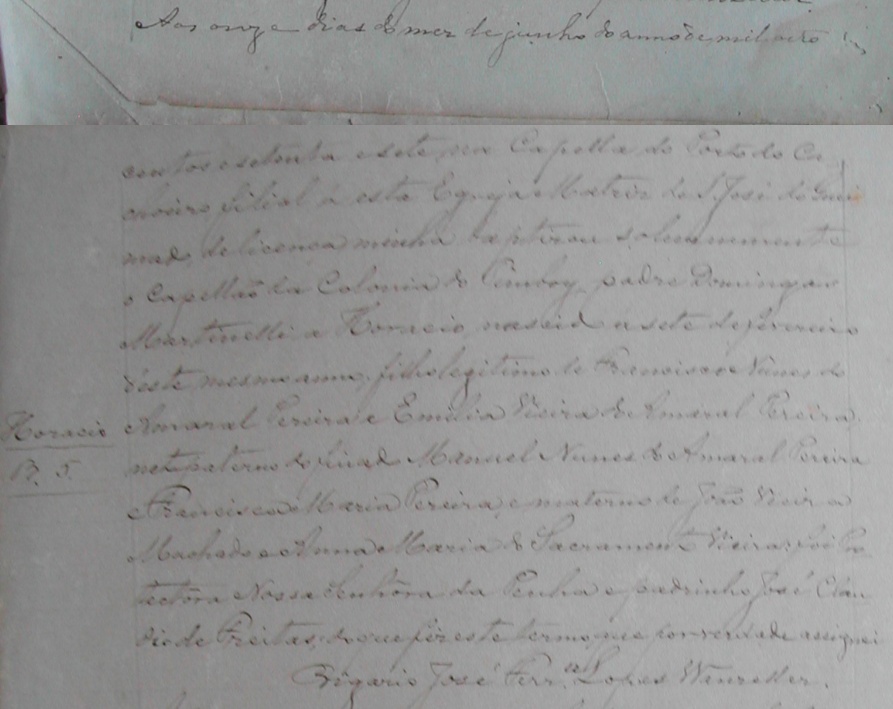 Aos onze dias do mez de junho do anno de mil oito
centos e setenta e sete na Capella do Porto do Ca
choeiro filial á esta Egreja Matriz de S. José do Quei
mado, de licença minha baptizou solemnemente
o Capellaõ da Colonia do Timboy, padre Domingos
Martinelli a Horacio, nascido a sete de fevereiro
d'este mesmo anno, filho legitimo de Francisco Nunes do
Amaral Pereira e Emilia Vieira do Amaral Pereira,
Horacio
B. 5.
neto paterno do finado Manuel Nunes do Amaral Pereira
e Francisca Maria Pereira, e materno de João Vieira
Machado e Anna Maria do Sacramento Vieira; foi Pro
tectôra Nossa Senhôra da Penha e padrinho José Clau
dio de Freitas, do que fiz este termo, que por verdade assignei
Vigario José Ferr.ª Lopes Wanzeller.